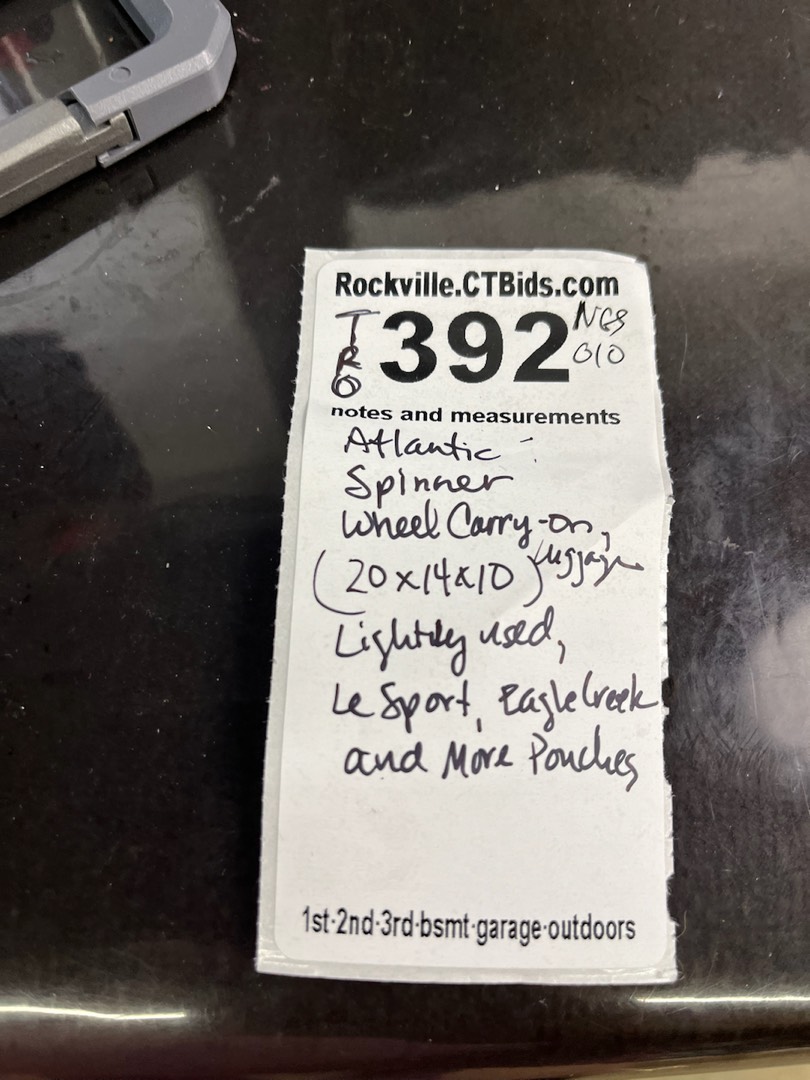 Rockville.CTBids.com
TRO 392 NGS 010
notes and measurements
Atlantic
Spinner
Wheel Carry-on,
(20x14x10) Luggage
Lightly used,
Le Sport, Eagle Creek
and More Pouches
1st·2nd·3rd·bsmt·garage·outdoors